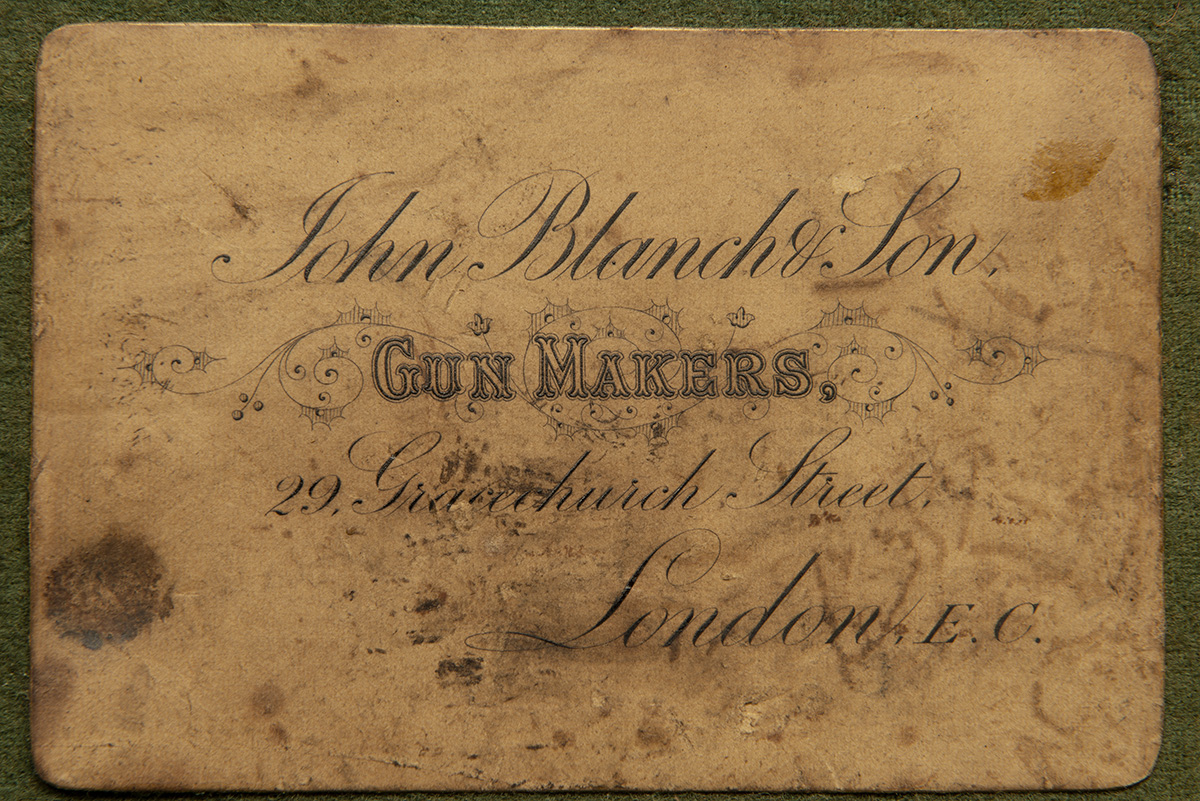 John Blanch & Son.
GUN MAKERS,
29, Gracechurch Street,
London, E. C.